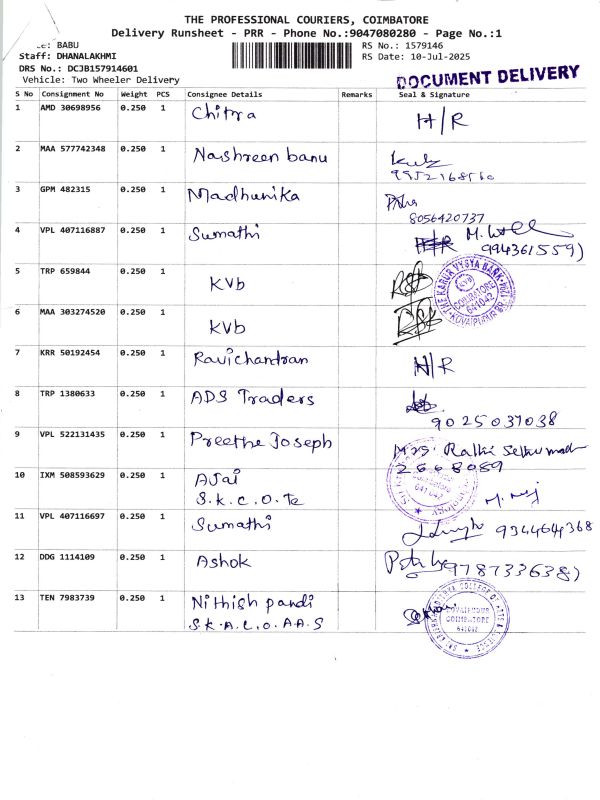 THE PROFESSIONAL COURIERS, COIMBATORE
Delivery Runsheet - PRR - Phone No.:9047080280 - Page No.:1
BABU
RS No.: 1579146
Staff: DHANALAKHMI
RS Date: 10-Jul-2025
DRS No.: DCJB157914601
Vehicle: Two Wheeler Delivery
DOCUMENT DELIVERY
S No Consignment No Weight PCS Consignee Details Remarks Seal & Signature
1 AMD 30698956 0.250 1 Chitra H/R
2 MAA 577742348 0.250 1 Nashreen banu
3 GPM 482315 0.250 1 Madhunika
8056420737
4 VPL 407116887 0.250 1 Sumathi H/R
5 TRP 659844 0.250 1 KVb
THE KARUR VYSYA BANK
COIMBATORE
641042
6 MAA 303274520 0.250 1 KVb
7 KRR 50192454 0.250 1 Ravichandran H/R
8 TRP 1380633 0.250 1 ADS Traders
9025037038
9 VPL 522131435 0.250 1 Preethe Joseph Mrs. Rathi
2668089
10 IXM 508593629 0.250 1 AJai
S.K.C.O.Te
641042
11 VPL 407116697 0.250 1 Sumathi 9344644368
12 DDG 1114109 0.250 1 Ashok
13 TEN 7983739 0.250 1 Nithish pandi
S.K.A.C.O.A.A.S
COIMBATORE
641042